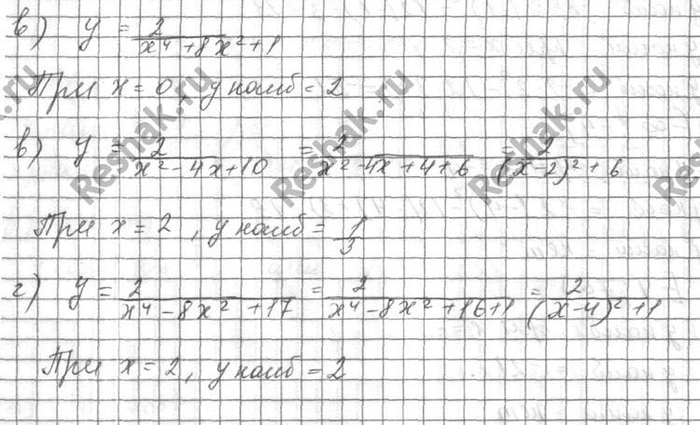 в) y = 2/(x⁴ + 8x² + 1)
При x = 0, y наиб = 2
в) y = 2/(x² - 4x + 10) = 2/(x² - 4x + 4 + 6) = 2/((x - 2)² + 6)
При x = 2, y наиб = 1/3
г) y = 2/(x⁴ - 8x² + 17) = 2/(x⁴ - 8x² + 16 + 1) = 2/((x - 4)² + 1)
При x = 2, y наиб = 2
Reshak.ru
Reshak.ru
Reshak.ru
Reshak.ru